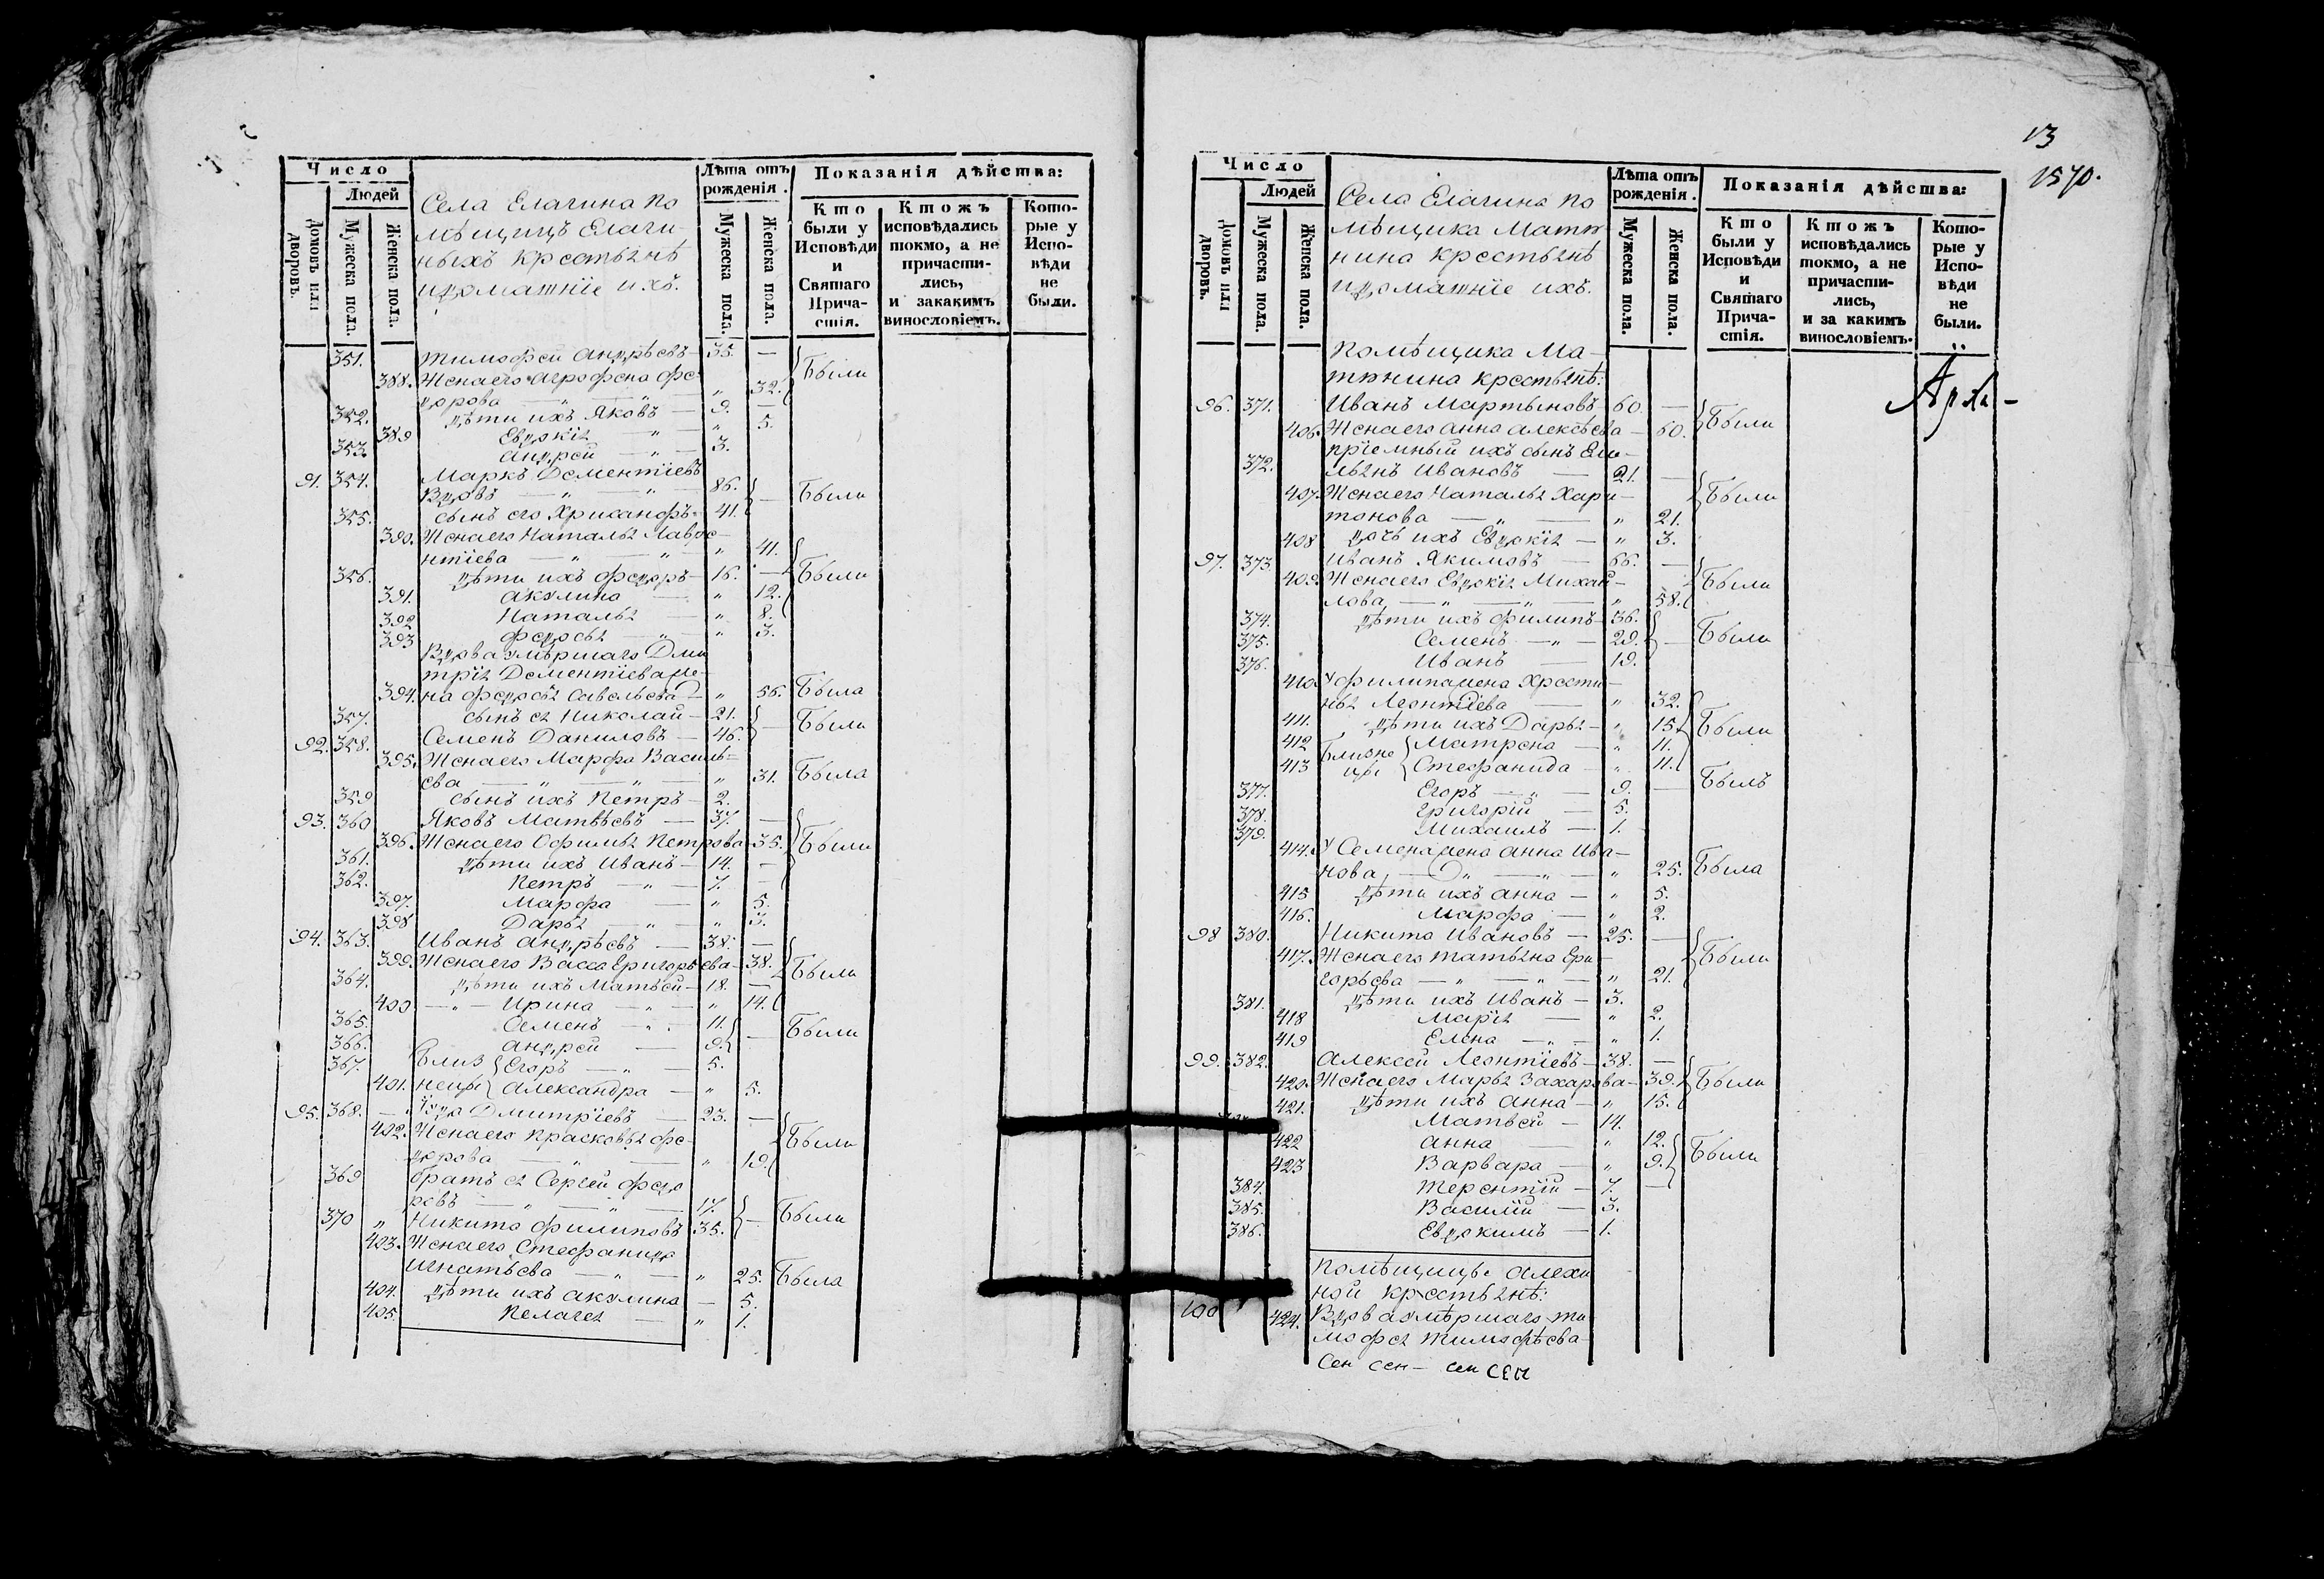 Число
Людей
Домовъ или дворовъ.
Мужеска пола.
Женска пола.
Села Елагина по
мѣщицъ Елаги
ныхъ крестьянѣ
идомашніе ихъ.
Лѣта отъ рожденія.
Мужеска пола.
Женска пола.
Показанія дѣйства:
Кто были у Исповѣди и Святаго Прича- стія.
Ктожъ исповѣдались токмо, а не причасти- лись, и закакимъ винословіемъ.
Кото- рые у Испо- вѣди не были.
351. Тимофей Андрѣевъ — 35. — Были
388. Женаего Агрофена Фе-
дорова — " — " 32.
352. дѣти ихъ Яковъ — 9. —
389 Евдокія — " — " 5.
353. Андрей — " — 3.
91. 354. Маркъ Дементіевъ
Вдовъ — " — " — 86. — Были
355. сынъ его Хрисанфъ 41.
390. Женаего Наталья Лавре-
нтіева — " — " — " 41.
356. дѣти ихъ Федоръ 16. — Были
391. Акулина — " 12.
392 Наталья — " 8.
393 Федосья — " — " 3.
Вдова умѣршаго Дми
трія Дементіева же-
394. на Федосья Савельева — " 56. Была
357. сынъ ея Николай — 21. — Были
92. 358. Семенъ Даниловъ — 46.
395. Женаего Марфа Василь-
ева — " — " — " 31. Была
359 сынъ ихъ Петръ — 2.
93. 360 Яковъ Матвѣевъ — 37. —
396. Женаего Офимья Петрова 35. Были
361. дѣти ихъ Иванъ — 14. —
362. Петръ — " — 7.
397. Марфа — " 5.
398 Дарья — " — " 3.
94. 363. Иванъ Андрѣевъ — 38. —
399. Женаего Васса Григорьева 38. Были
364. дѣти ихъ Матвей — 18. —
400 — " — Ирина — " — " 14.
365. Семенъ — " — 11. — Были
366. Андрей — 9.
367. Близ { Егоръ — " — 5.
401. нецы { Александра — " 5.
95. 368. — " Iуда Дмитріевъ — 23. —
402. Женаего Прасковья Фе- Были
дорова — " — " 19.
369 братъ ея Сергей Федо
ровъ — " — " — 17. — Были
370 " Никита Филиповъ 35.
403. Женаего Стефанида
Игнатьева — " — " 25. Была
404. дѣти ихъ Акулина — 5.
405. Пелагея — " 1.
13
1570.
Число
Людей
Домовъ или дворовъ.
Мужеска пола.
Женска пола.
Села Елагина по
мѣщика Матю-
нина крестьянѣ
идомашніе ихъ.
Лѣта отъ рожденія.
Мужеска пола.
Женска пола.
Показанія дѣйства:
Кто были у Исповѣди и Святаго Прича- стія.
Ктожъ исповѣдались токмо, а не причасти- лись, и за какимъ винословіемъ.
Кото- рые у Испо- вѣди не были.
Помѣщика Ма-
тюнина крестьянѣ:
96. 371. Иванъ Мартыновъ 60. — Были
406. Женаего Анна Алексѣева — 60.
пріемный ихъ сынъ Еме-
372. льянъ Ивановъ — 21. —
407. Женаего Наталья Хари- Были
тонова — " — " 21.
408 дочь ихъ Евдокія — " 3.
97. 373. Иванъ Якимовъ — 66. —
409. Женаего Евдокія Михай- Были
лова — " — " — " 58.
374. дѣти ихъ Филипъ 36.
375. Семенъ — " — 29. — Были
376. Иванъ — 19.
410. У Филипажена Хрести-
нья Леонтіева — " 32.
411. дѣти ихъ Дарья — " 15. Были
412 Близне { Матрена — " 11.
413 цы { Стефанида — " 11.
377. Егоръ — " — 9. — Былъ
378. Григорій — 5.
379. Михаилъ — 1.
414. У Семенажена Анна Ива-
нова — " — " — " 25. Была
415 дѣти ихъ Анна — " 5.
416. Марфа — " 2.
98 380. Никита Ивановъ — 25. —
417. Женаего Татьяна Гри- Были
горьева — " — " — " 21.
381. дѣти ихъ Иванъ — 3.
418 Марія — " 2.
419 Елена — " — " 1.
99. 382. Алексей Леонтіевъ — 38. —
420. Женаего Марья Захарова — 39. Были
421. дѣти ихъ Анна — " 15.
Матвей — 14.
422 Анна — " 12.
423 Варвара — " 9. Были
384. Терентій — 7. —
385. Василій — 3.
386. Евдокимъ — 1.
Помѣщицы Алехи
ной крестьянѣ:
100 424. Вдова умѣршаго Ти
мофея Тимофѣева